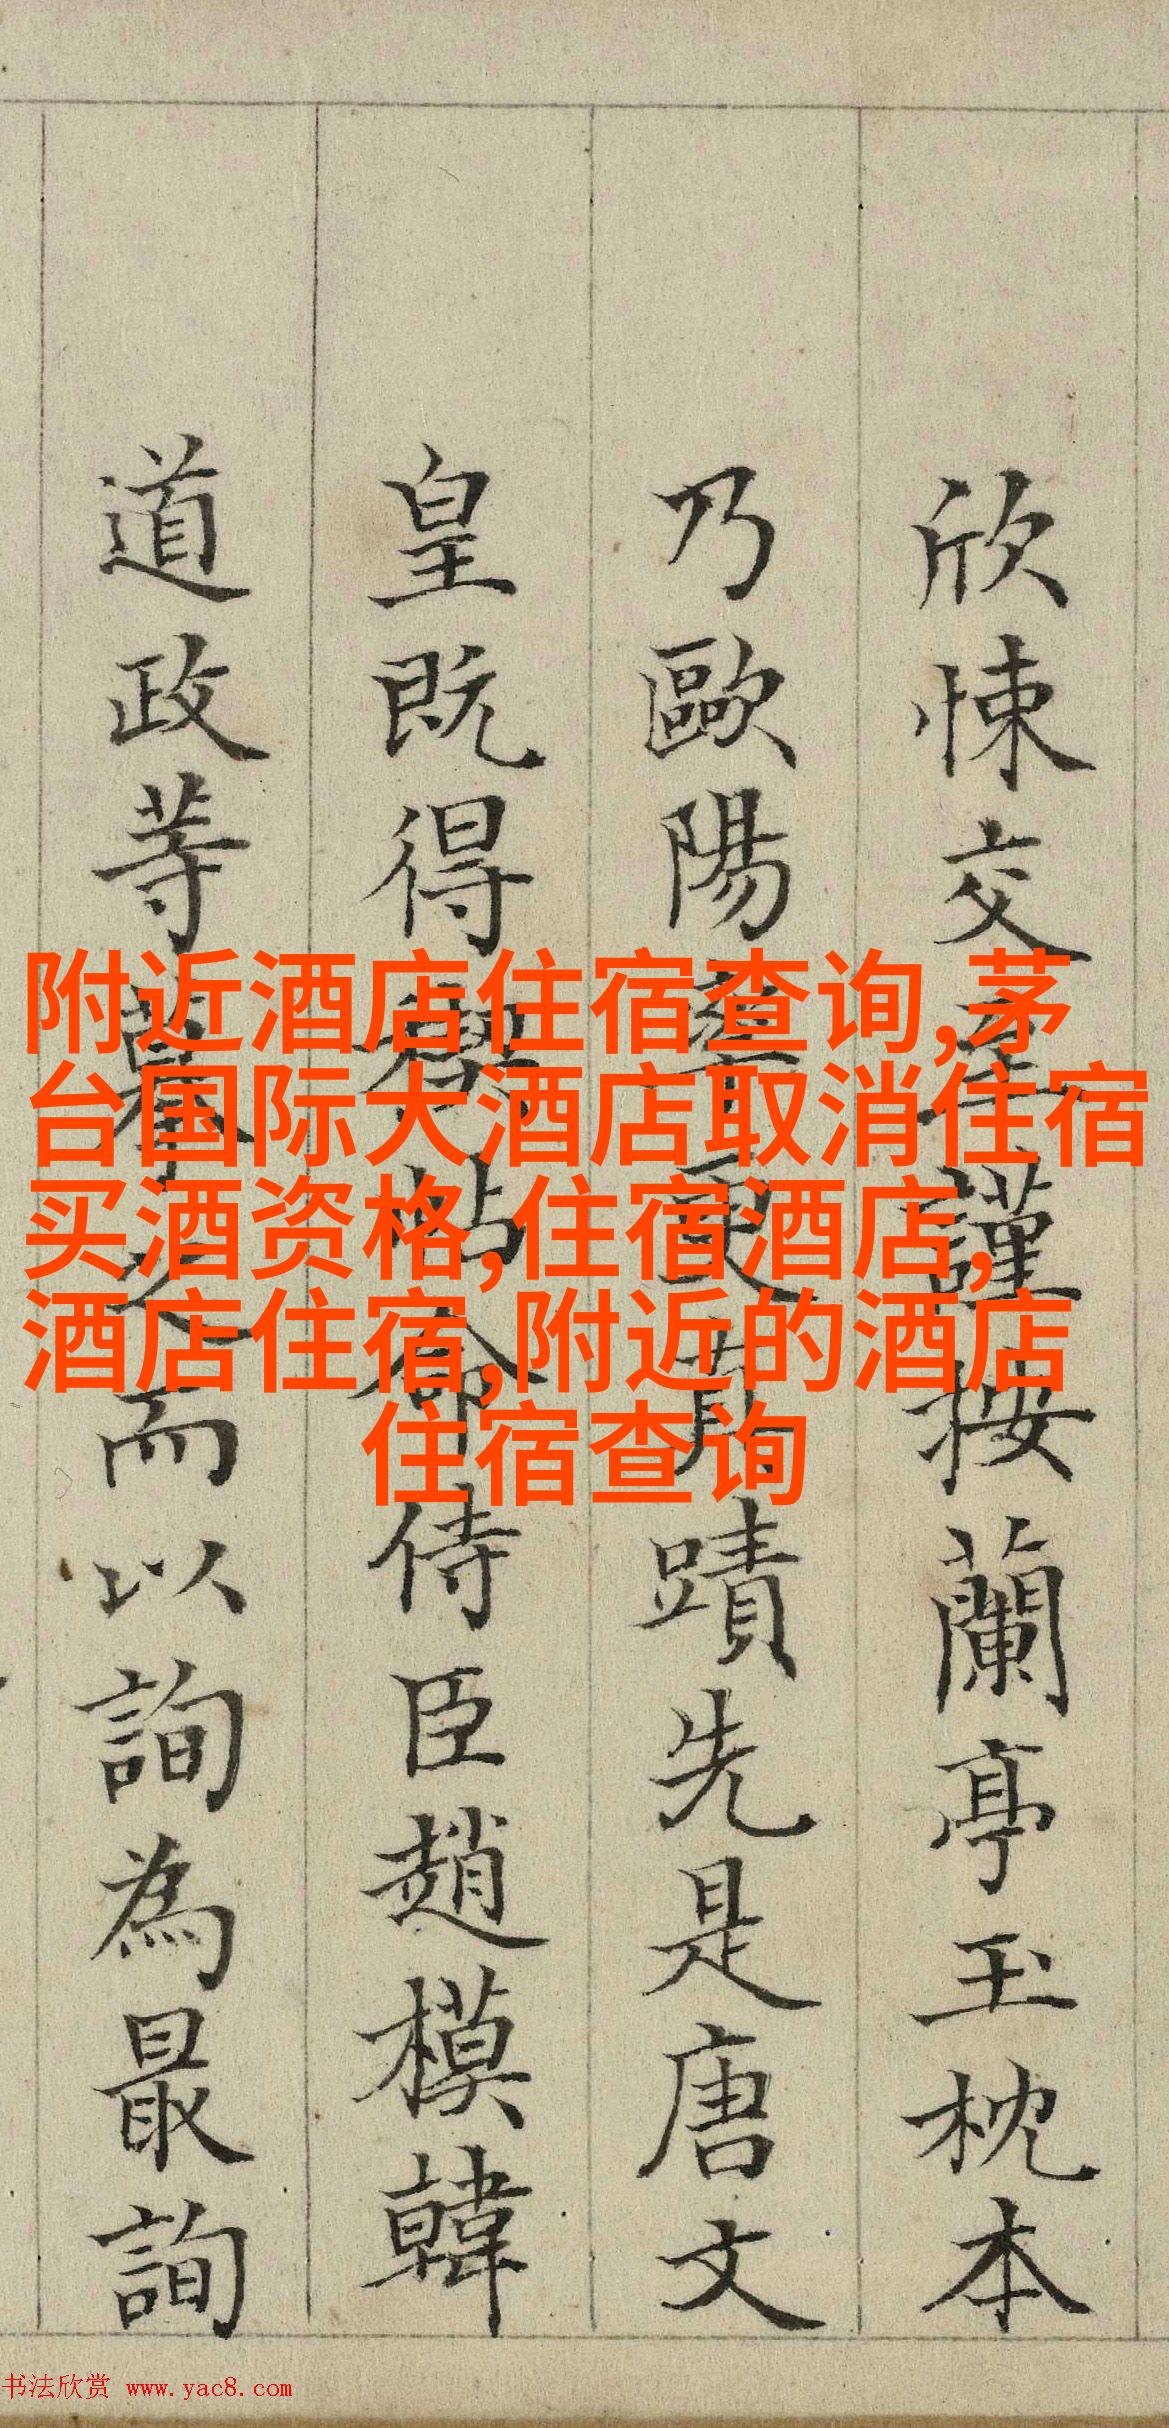 欣悚交幸謹按蘭亭玉枕本
乃歐陽率更真蹟先是唐文
皇既得禊帖命侍臣趙模韓
道政等摹之而以詢為最詢
附近酒店住宿查询,茅
台国际大酒店取消住宿
买酒资格,住宿酒店,
酒店住宿,附近的酒店
住宿查询
书法欣赏 www.yac8.com